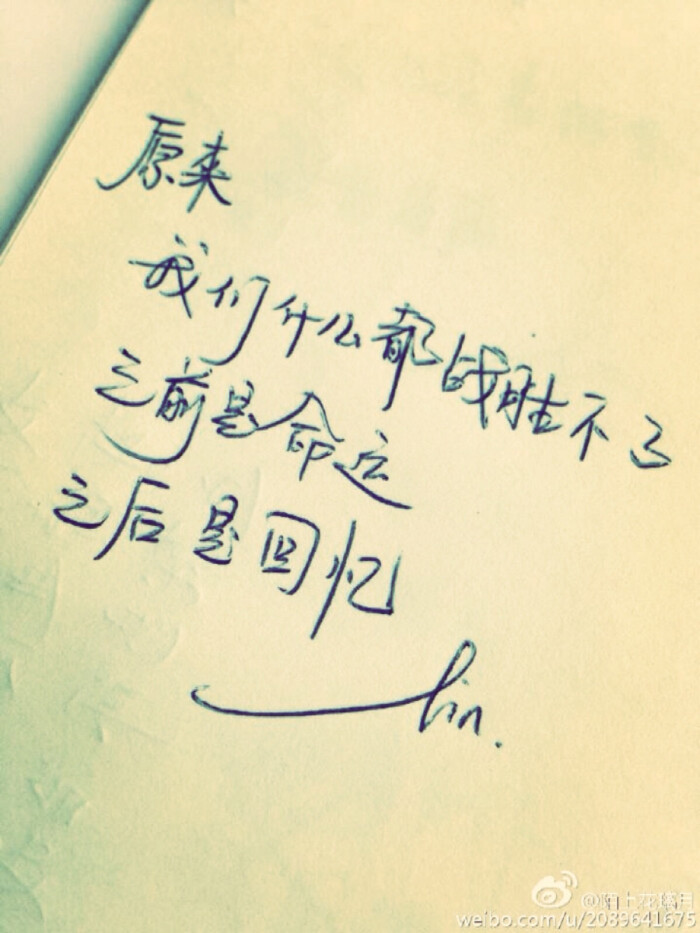 原来
我们什么都战胜不了
之前是命运
之后是回忆
lin.
weibo.com/u/2089641675